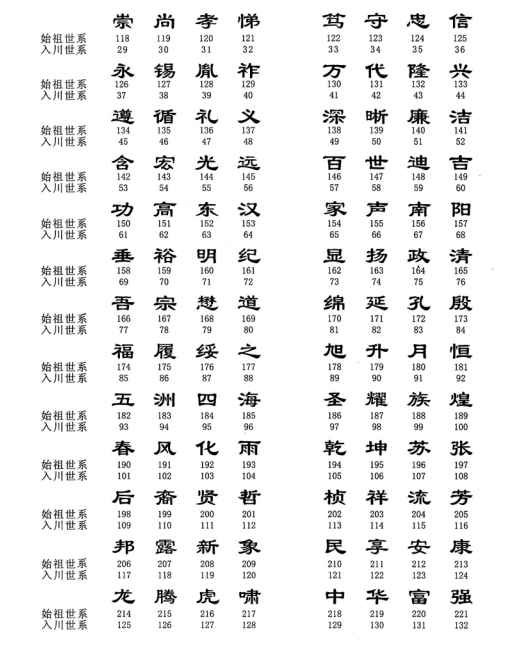 崇 尚 孝 悌 笃 守 忠 信
始祖世系 118 119 120 121 122 123 124 125
入川世系 29 30 31 32 33 34 35 36
永 锡 胤 祚 万 代 隆 兴
始祖世系 126 127 128 129 130 131 132 133
入川世系 37 38 39 40 41 42 43 44
遵 循 礼 义 深 晰 廉 洁
始祖世系 134 135 136 137 138 139 140 141
入川世系 45 46 47 48 49 50 51 52
含 宏 光 远 百 世 迪 吉
始祖世系 142 143 144 145 146 147 148 149
入川世系 53 54 55 56 57 58 59 60
功 高 东 汉 家 声 南 阳
始祖世系 150 151 152 153 154 155 156 157
入川世系 61 62 63 64 65 66 67 68
垂 裕 明 纪 显 扬 政 清
始祖世系 158 159 160 161 162 163 164 165
入川世系 69 70 71 72 73 74 75 76
吾 宗 懋 道 绵 延 孔 殷
始祖世系 166 167 168 169 170 171 172 173
入川世系 77 78 79 80 81 82 83 84
福 履 绥 之 旭 升 月 恒
始祖世系 174 175 176 177 178 179 180 181
入川世系 85 86 87 88 89 90 91 92
五 洲 四 海 圣 耀 族 煌
始祖世系 182 183 184 185 186 187 188 189
入川世系 93 94 95 96 97 98 99 100
春 风 化 雨 乾 坤 苏 张
始祖世系 190 191 192 193 194 195 196 197
入川世系 101 102 103 104 105 106 107 108
后 裔 贤 哲 桢 祥 流 芳
始祖世系 198 199 200 201 202 203 204 205
入川世系 109 110 111 112 113 114 115 116
邦 露 新 象 民 享 安 康
始祖世系 206 207 208 209 210 211 212 213
入川世系 117 118 119 120 121 122 123 124
龙 腾 虎 啸 中 华 富 强
始祖世系 214 215 216 217 218 219 220 221
入川世系 125 126 127 128 129 130 131 132